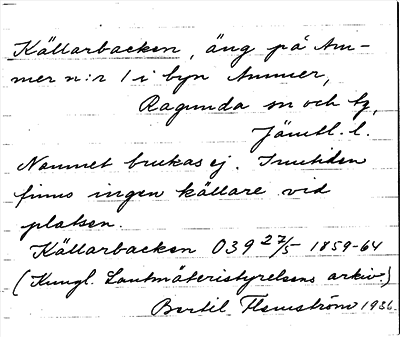 Källarbacken, äng på Am-
mer n:r 1 i byn Ammer,
Ragunda sn och tg,
Jämtl. l.
Namnet brukas ej. I nutiden
finns ingen källare vid
platsen.
Källarbacken O39 27/5 1859-64
(Kungl. Lantmäteristyrelsens arkiv)
Bertil Flemström 1936.